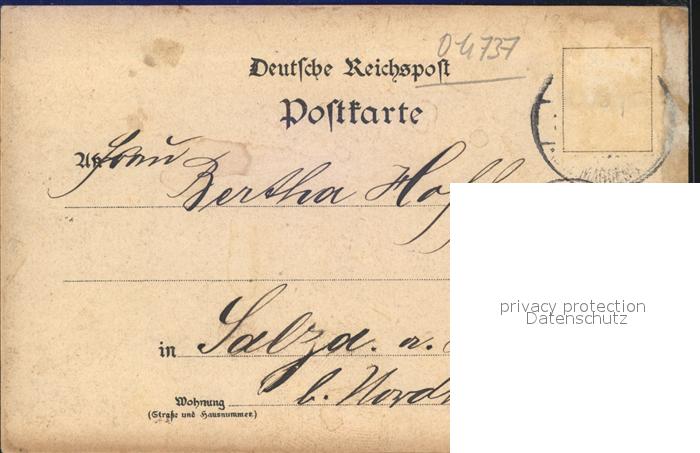 Deutsche Reichspost
Postkarte
An Frau
Bertha Hoff
in Salza. a.
b. Nordh
Wohnung
(Straße und Hausnummer)
privacy protection
Datenschutz